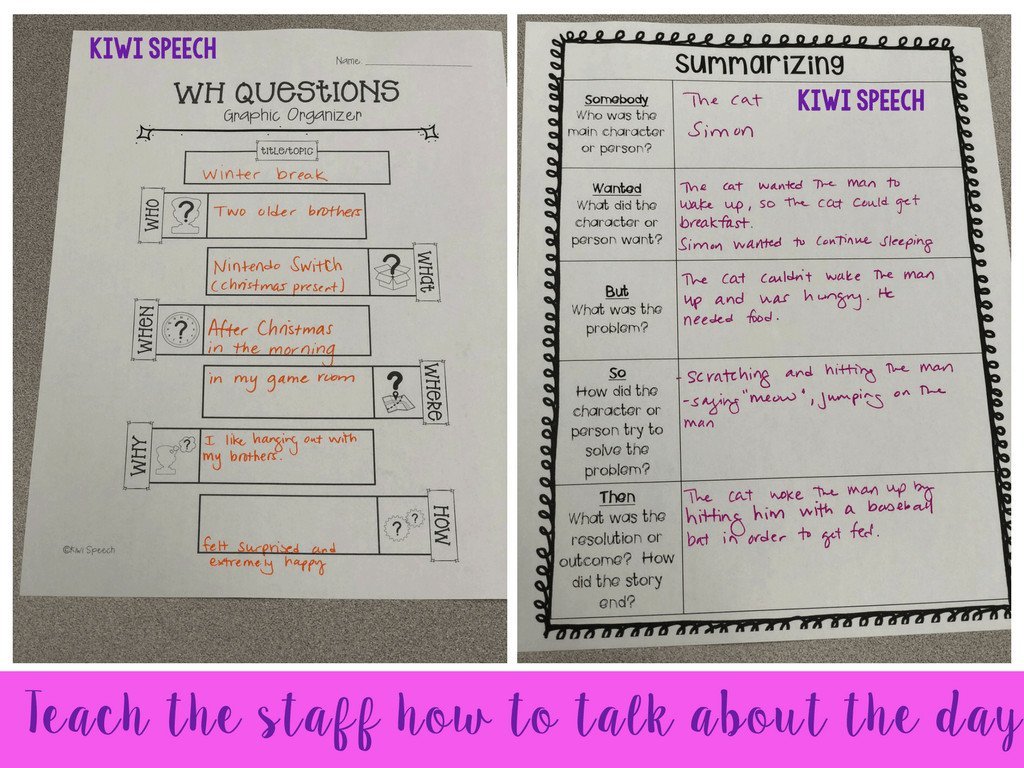 KIWI SPEECH
Name:
WH QUESTIONS
Graphic Organizer
title/topic
winter break
WHO
Two older brothers
WHAT
Nintendo Switch
(christmas present)
WHEN
After Christmas
in the morning
WHERE
in my game room
WHY
I like hanging out with
my brothers.
HOW
felt surprised and
extremely happy
©Kiwi Speech
Summarizing
KIWI SPEECH
Somebody
Who was the
main character
or person?
The cat
Simon
Wanted
What did the
character or
person want?
The cat wanted the man to
wake up, so the cat could get
breakfast.
Simon wanted to continue sleeping
But
What was the
problem?
The cat couldn't wake the man
up and was hungry. He
needed food.
So
How did the
character or
person try to
solve the
problem?
- Scratching and hitting the man
- saying "meow", jumping on the
man
Then
What was the
resolution or
outcome? How
did the story
end?
The cat woke the man up by
hitting him with a baseball
bat in order to get fed.
Teach the staff how to talk about the day